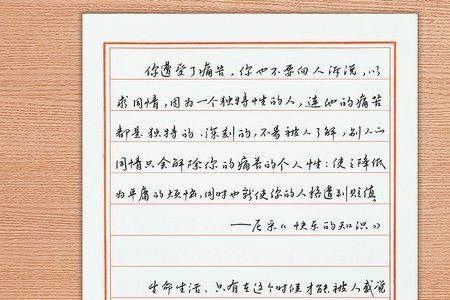 你遭受了痛苦，你也不要向人诉说，以
求同情，因为一个独特性的人，连他的痛苦
都是独特的、深刻的，不易被人了解，别人的
同情只会解除你的痛苦的个人性；使之降低
为平庸的烦恼，同时也就使你的人格遭到贬值。
——尼采《快乐的知识》
生命生活、只有在这个时候才能被人感觉